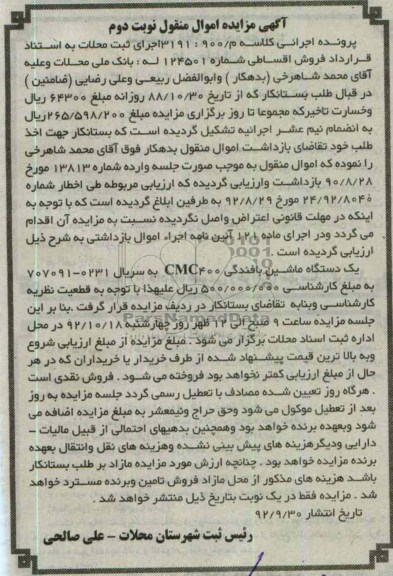 آگهی مزایده اموال منقول نوبت دوم
پرونده اجرائی کلاسه م/۹۰۰ : ۳۱۹۱اجرای ثبت محلات به استناد
قرارداد فروش اقساطی شماره ۱۲۴۵۰۱ له : بانک ملی محلات وعلیه
آقای محمد شاهرخی (بدهکار ) وابوالفضل ربیعی وعلی رضایی (ضامنین )
در قبال طلب بستانکار که از تاریخ ۸۸/۱۰/۳۰ روزانه مبلغ ۶۴۳۰۰ ریال
وخسارت تاخیرکه مجموعا تا روز برگزاری مزایده مبلغ ۲۶۵/۵۹۸/۲۰۰ریال
به انضمام نیم عشر اجرائیه تشکیل گردیده است که بستانکار جهت اخذ
طلب خود تقاضای بازداشت اموال منقول بدهکار فوق آقای محمد شاهرخی
را نموده که اموال منقول به موجب صورت جلسه وارده شماره ۱۳۸۱۳ مورخ
۹۰/۸/۲۸ بازداشت وارزیابی گردیده که ارزیابی مربوطه طی اخطار شماره
۲۴/۹۲/۸۰۴۶ مورخ ۹۲/۸/۲۹ به طرفین ابلاغ گردیده است که با توجه به
اینکه در مهلت قانونی اعتراض واصل نگردیده نسبت به مزایده آن اقدام
می گردد ودر اجرای ماده ۱۲۱ آئین نامه اجراء اموال بازداشتی به شرح ذیل
ارزیابی گردیده است .
یک دستگاه ماشین بافندگی CMC۴۰۰ به سریال ۰۲۳۱-۷۰۷۰۹۱
به مبلغ کارشناسی ۵۰۰/۰۰۰/۰۰۰ ریال علیهذا با توجه به قطعیت نظریه
کارشناسی وبنابه تقاضای بستانکار در ردیف مزایده قرار گرفت .بنا بر این
جلسه مزایده ساعت ۹ صبح الی ۱۲ ظهر روز چهارشنبه ۹۲/۱۰/۱۸ در محل
اداره ثبت اسناد محلات برگزار می شود . مبلغ مزایده از مبلغ ارزیابی شروع
وبه بالا ترین قیمت پیشنهاد شده از طرف خریدار یا خریداران که در هر
حال از مبلغ ارزیابی کمتر نخواهد بود فروخته می شود . فروش نقدی است
. هرگاه روز تعیین شده مصادف با تعطیل رسمی گردد جلسه مزایده به روز
بعد از تعطیل موکول می شود وحق حراج ونیمعشر به مبلغ مزایده اضافه می
شود وبعهده برنده خواهد بود وهمچنین بدهیهای احتمالی از قبیل مالیات -
دارایی ودیگرهزینه های پیش بینی نشده وهزینه های نقل وانتقال بعهده
برنده مزایده خواهد بود . چنانچه ارزش مورد مزایده مازاد بر طلب بستانکار
باشد هزینه های مذکور از محل مازاد فروش تامین وبرنده مسترد خواهد
شد . مزایده فقط در یک نوبت بتاریخ ذیل منتشر خواهد شد .
تاریخ انتشار ۹۲/۹/۳۰
رئیس ثبت شهرستان محلات - علی صالحی